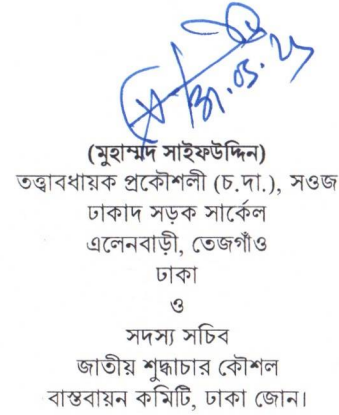 ৩১.০৫.২৩
(মুহাম্মদ সাইফউদ্দিন)
তত্ত্বাবধায়ক প্রকৌশলী (চ.দা.), সওজ
ঢাকাদ সড়ক সার্কেল
এলেনবাড়ী, তেজগাঁও
ঢাকা
ও
সদস্য সচিব
জাতীয় শুদ্ধাচার কৌশল
বাস্তবায়ন কমিটি, ঢাকা জোন।